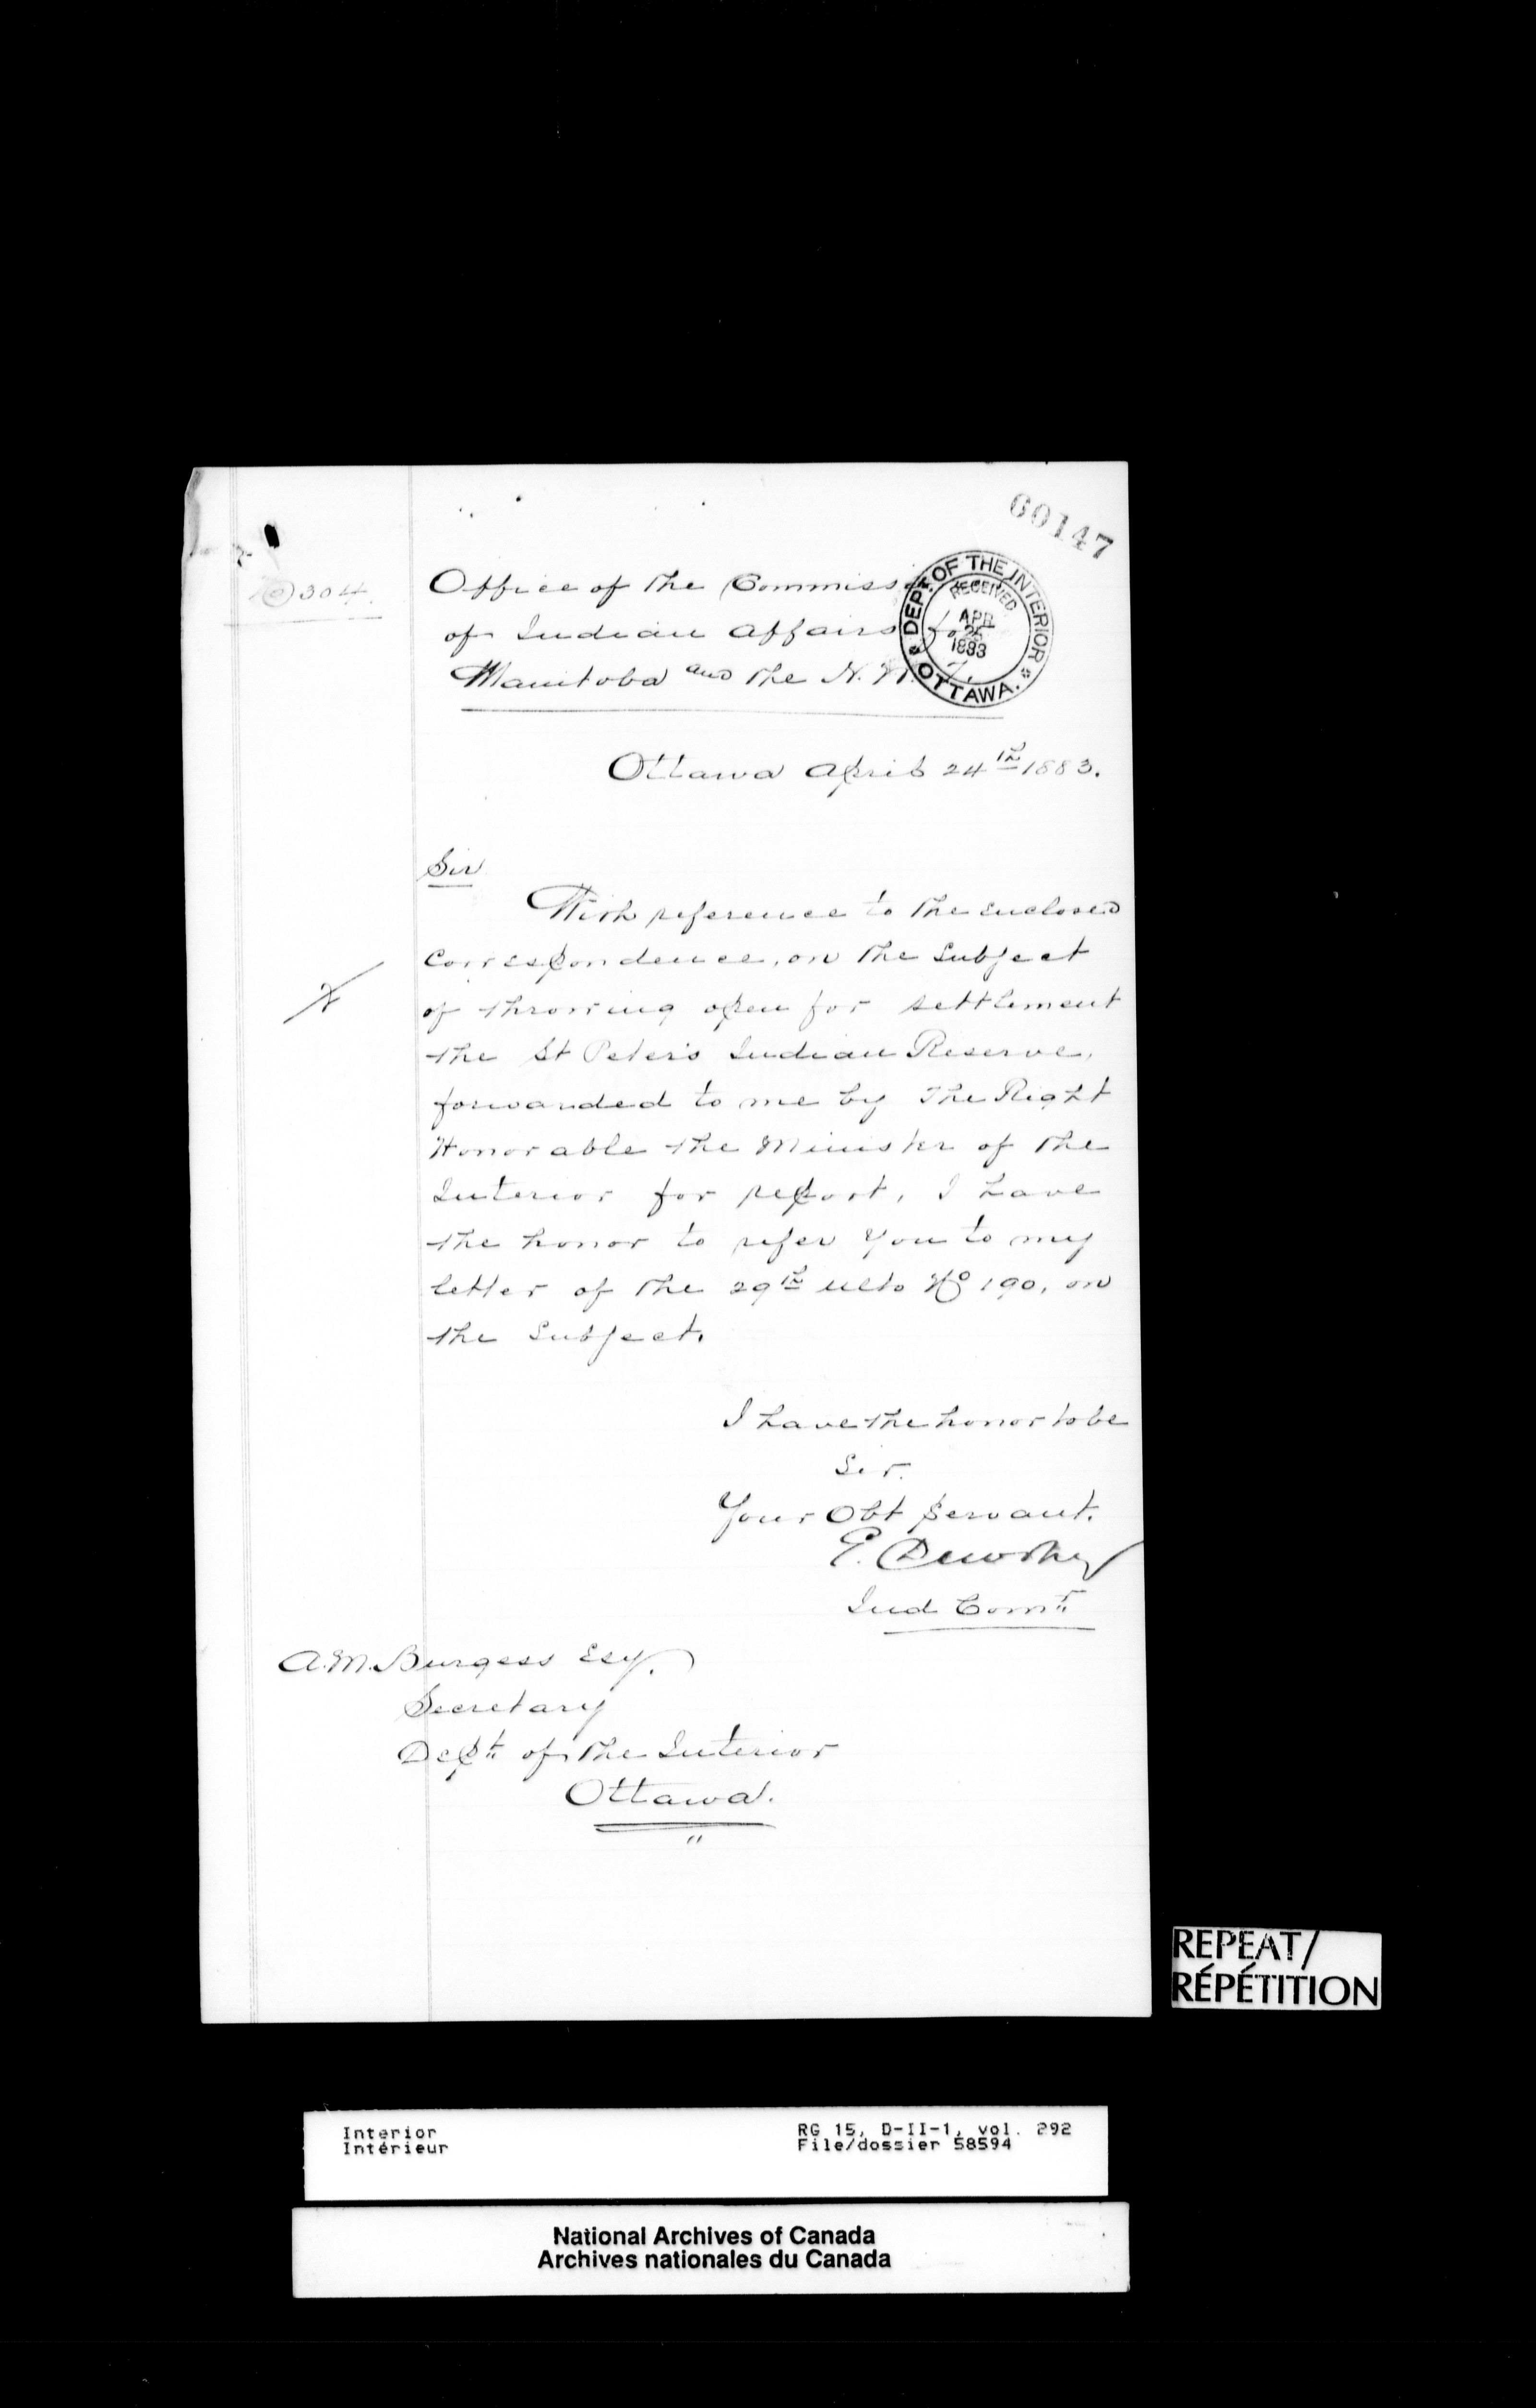 60147
304.
Office of the Commiss
of Indian Affairs for
Manitoba and the N. W. T.
DEPT. OF THE INTERIOR
RECEIVED
APR
25
1883
OTTAWA.
Ottawa April 24th 1883.
Sir
With reference to the enclosed
Correspondence, on the Subject
of throwing open for settlement
the St Peter's Indian Reserve,
forwarded to me by The Right
Honorable the Minister of the
Interior for report, I have
the honor to refer you to my
letter of the 29th ulto No 190, on
the Subject.
I have the honor to be
Sir.
Your Obt Servant.
E. Dewdney
Ind Comr
A. M. Burgess Esq.
Secretary
Dept of the Interior
Ottawa.
REPEAT/
RÉPÉTITION
Interior
Intérieur
RG 15, D-II-1, vol. 292
File/dossier 58594
National Archives of Canada
Archives nationales du Canada